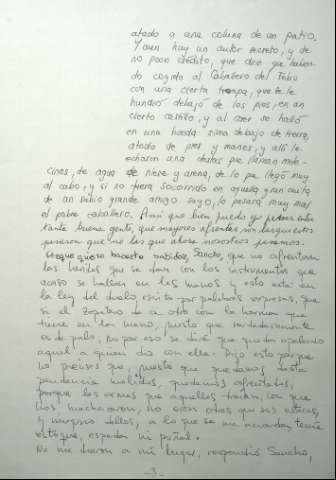 atado a una coluna de un patio.
Y aun hay un autor secreto, y de
no poco crédito, que dice que habien-
do cogido al Caballero del Febo
con una cierta trampa, que se le
hundió debajo de los pies, en un
cierto castillo, y al caer se halló
en una honda sima debajo de tierra,
atado de pies y manos, y allí le
echaron una destas que llaman mele-
cinas, de agua de nieve y arena, de lo que llegó muy
al cabo, y si no fuera socorrido en aquella gran cuita
de un sabio grande amigo suyo, lo pasara muy mal
el pobre caballero. Ansí que bien puedo yo pasar entre
tanta buena gente, que mayores afrentas son las que estos
pasaron que no las que ahora nosotros pasamos.
quiero hacerte sabidor, Sancho, que no afrentan
las heridas que se dan con los instrumentos que
acaso se hallan en las manos y esto está en
la ley del duelo escrito por palabras expresas, que
si el zapatero da a otro con la horma que
tiene en la mano, puesto que verdaderamente
es de palo, no por eso se dirá que queda apaleado
aquel a quien dio con ella. Digo esto porque
no pienses que, puesto que quedamos desta
pendencia molidos, quedamos afrentados,
porque las armas que aquellos traían, con que
nos machacaron, no eran otras que sus estacas,
y ninguno dellos, a lo que se me acuerda, tenía
estoque, espada ni puñal.
No me dieron a mí lugar, respondió Sancho,
- 3 -